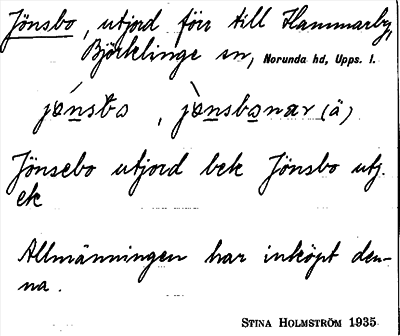 Jönsbo, utjord förr till Hammarby,
Björklinge sn, Norunda hd, Upps. l.
jo̱nsbo, jo̱nsbonar (ä)
Jönsebo utjord bek Jönsbo utj.
ek
Allmänningen har inköpt den-
na.
STINA HOLMSTRÖM 1935